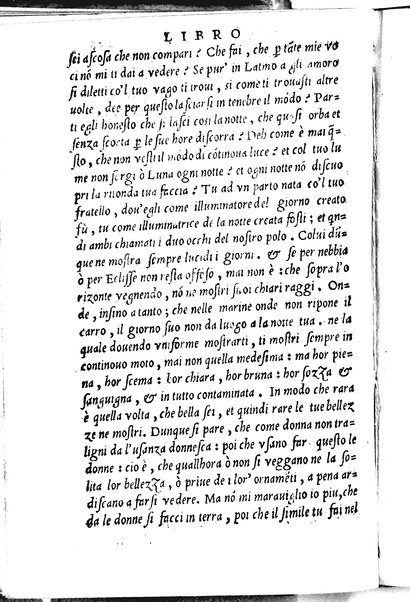 LIBRO
sei ascosa che non compari? Che fai, che p tāte mie vo
ci nō mi ti dai a vedere? Se pur' in Latmo a gli amoro
si diletti co'l tuo vago ti troui, si come ti trouasti altre
uolte, dee per questo lasciarsi in tenebre il mōdo? Par-
ti egli honesto che si lasci cosi la notte, che quasi orba et
senza scorta p le sue hore discorra? Deh come è mai q̄-
sto, che non vesti il mōdo di cōtinoua luce? et col tuo lu
me non sorgi ò Luna ogni notte? et ogni notte nō discuo
pri la ritonda tua faccia? Tu ad vn parto nata co'l tuo
fratello, dou'egli come illuminatore del giorno creato
fù, tu come illuminatrice de la notte creata fosti; et qn
di ambi chiamati i duo occhi del nostro polo. Colui dū-
que ne mostra sempre lucidi i giorni. & se per nebbia
ò per Eclisse non resta offeso, mai non è: che sopra l'o
rizonte vegnendo, nō ne mostri suoi chiari raggi. On-
de, insino a tanto; che nelle marine onde non ripone il
carro, il giorno suo non da luogo a la notte tua. ne la
quale douendo vniforme mostrarti, ti mostri sempre in
continouo moto, mai non quella medesima: ma hor pie-
na, hor scema: hor chiara, hor bruna: hor sozza &
sanguigna, & in tutto contaminata. In modo che rara
è quella volta, che bella sei, et quindi rare le tue bellez
ze ne mostri. Dunque si pare, che come donna non tra-
ligni da l'usanza donnesca: poi che vsano far questo le
donne: cio è, che quallhora ò non si veggano ne la so-
lita lor bellezza, ò priue de i lor' ornamēti, a pena ar-
discano a farsi vedere. Ma nō mi marauiglio io piu, che
da le donne si facci in terra, poi che il simile tu fai nel